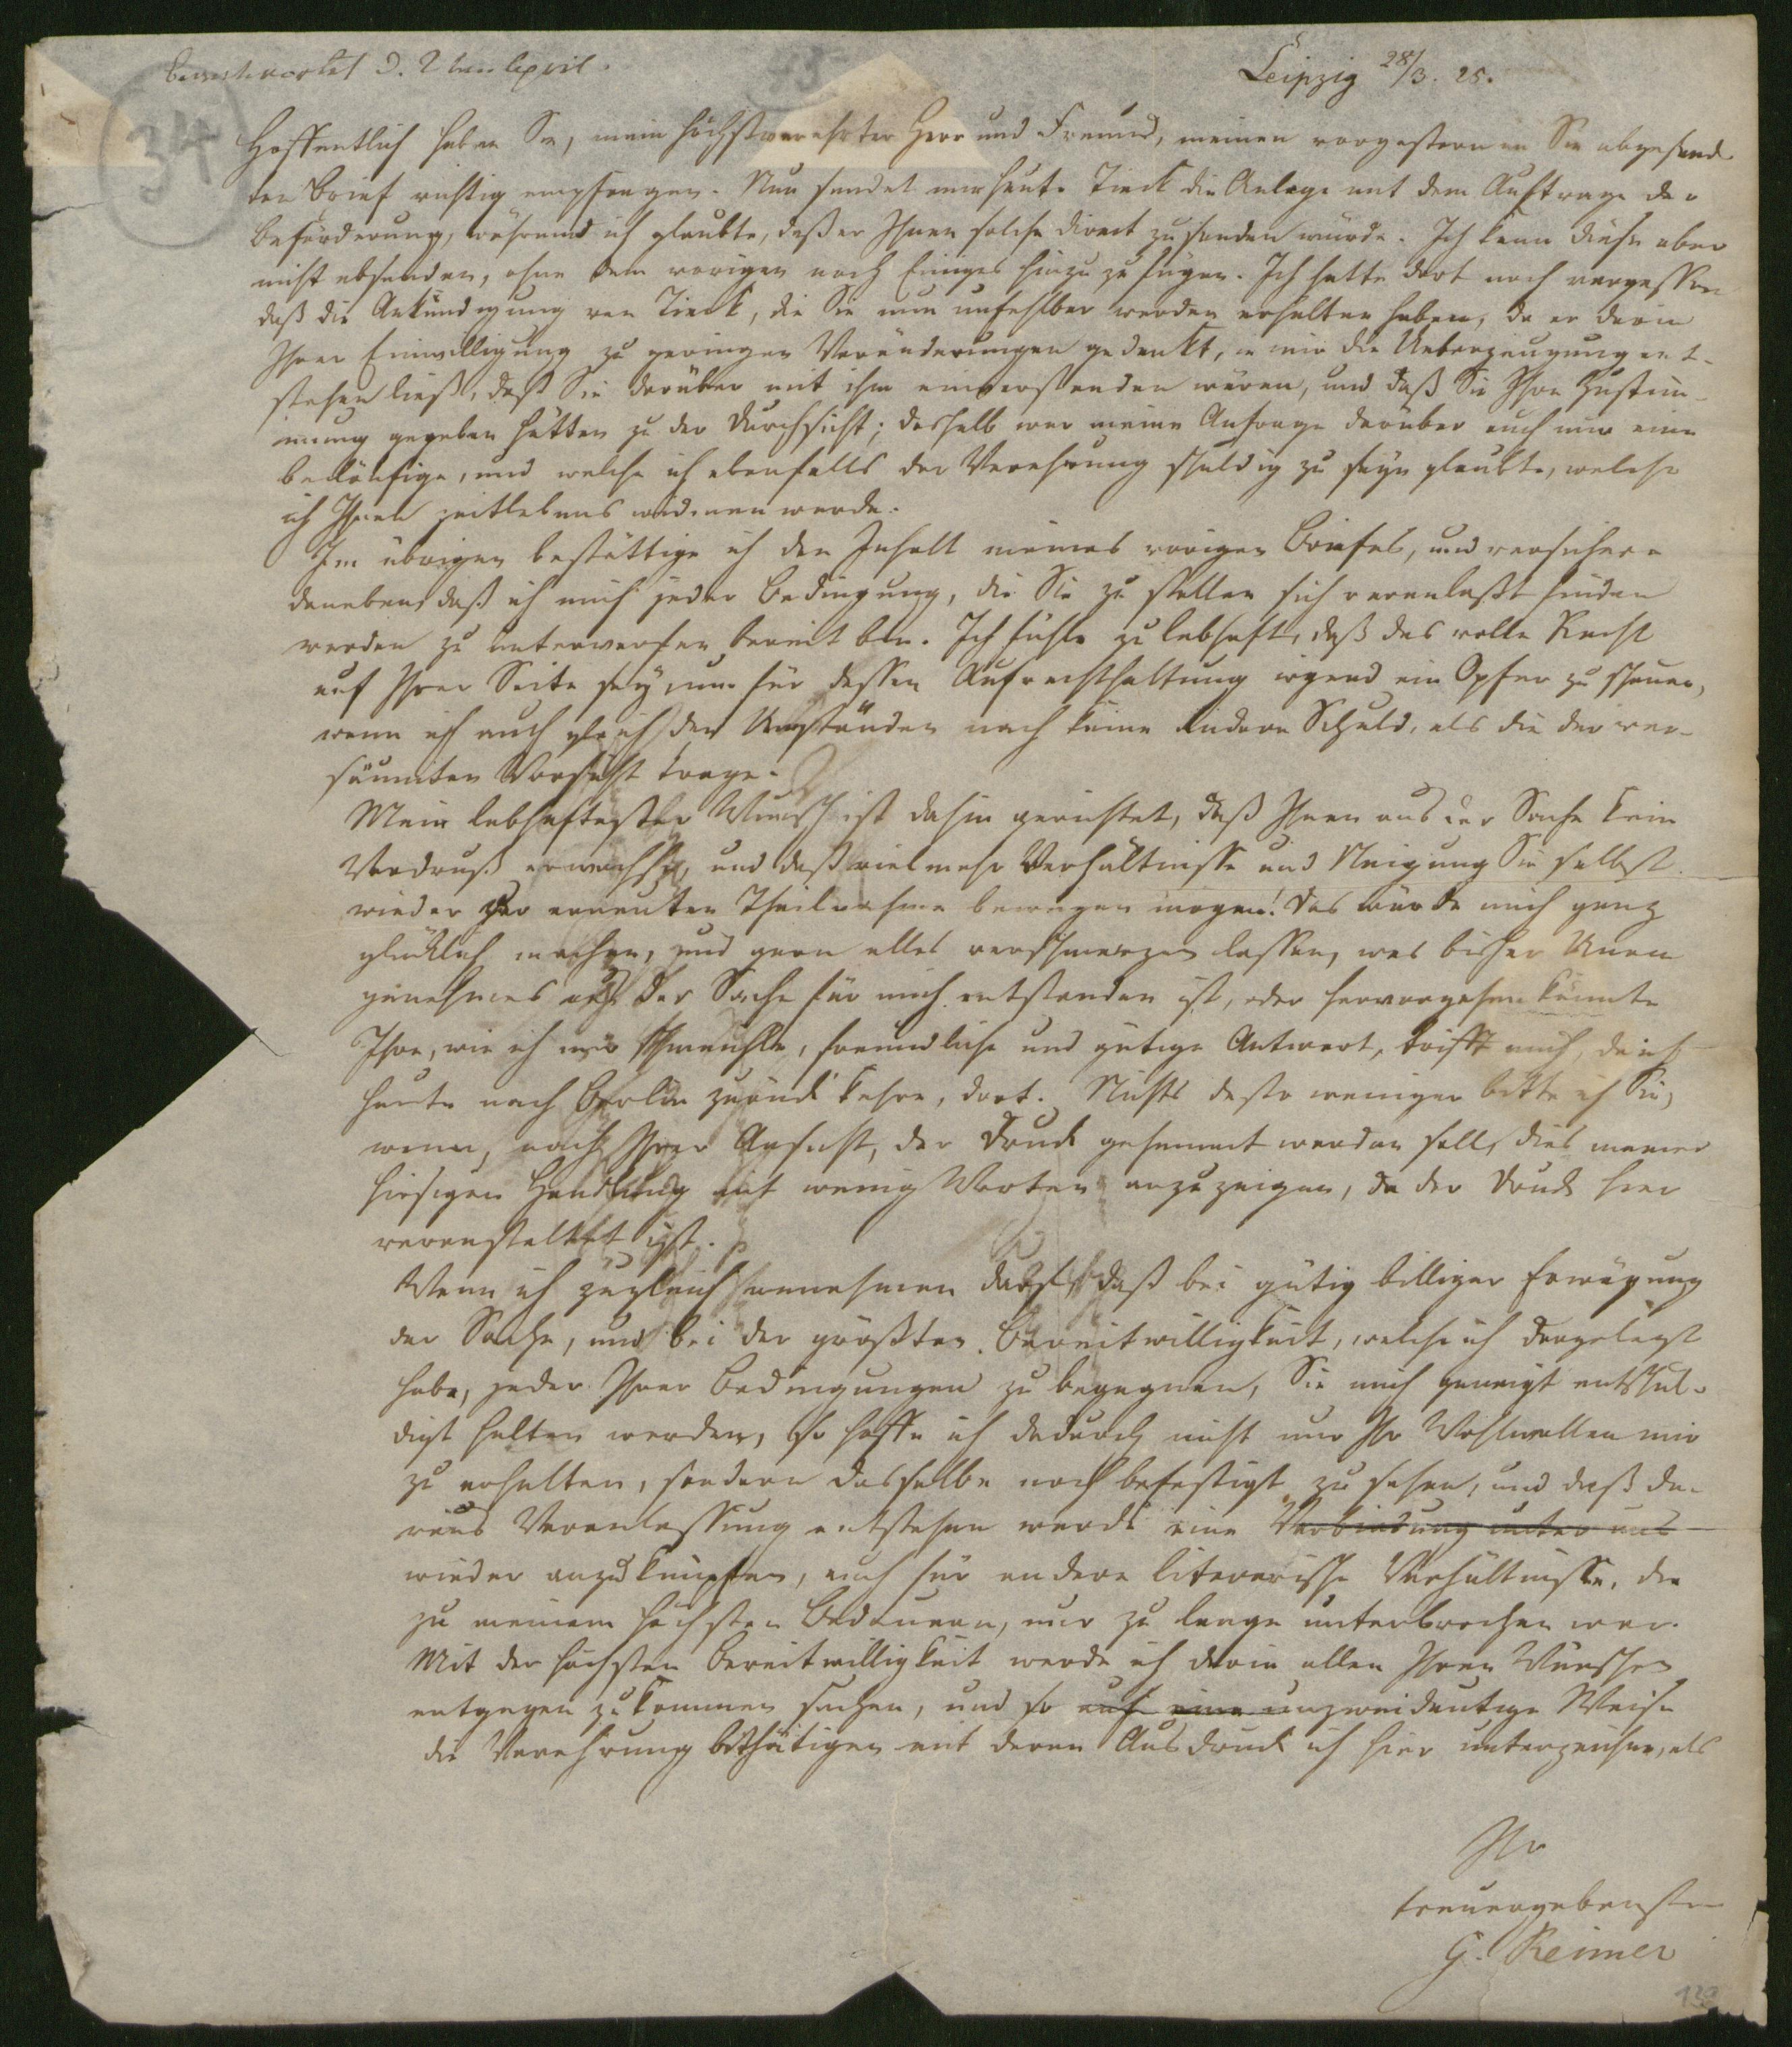 beantwortet d. 2ten April.
Leipzig 28/3. 25.
34
Hoffentlich haben Sie, mein höchstverehrter Herr und Freund, meinen vorgestern an Sie abgesand-
ten Brief richtig empfangen. Nun sendet mir heute Tieck die Anlage mit dem Auftrage der
Beförderung, während ich glaubte, daß er Ihnen solche direct zusenden würde. Ich kann diese aber
nicht absenden, ohne dem vorigen noch Einiges hinzu zu fügen. Ich hatte dort noch vergessen
daß die Ankündigung von Tieck, die Sie nun unfehlbar werden erhalten haben, da er darin
Ihrer Einwilligung zu geringen Veränderungen gedenkt, in mir die Ueberzeugung ent-
stehen ließ, daß Sie darüber mit ihm einverstanden wären, und daß Sie Ihre Zustim-
mung gegeben hätten zu der Durchsicht; deshalb war meine Anfrage darüber auch nur eine
beiläufige, und welche ich ebenfalls der Verehrung schuldig zu seyn glaubte, welche
ich Ihnen zeitlebens widmen werde.
Im übrigen bestättige ich den Inhalt meines vorigen Briefes, und versichere
daneben daß ich mich jeder Bedingung, die Sie zu stellen sich veranlaßt finden
werden zu unterwerfen bereit bin. Ich fühle zu lebhaft, daß das volle Recht
auf Ihrer Seite sey, um für dessen Aufrechthaltung irgend ein Opfer zu scheuen,
wenn ich auch gleich den Umständen nach keine andere Schuld, als die der ver-
säumten Vorsicht trage.
Mein lebhaftester Wunsch ist dahin gerichtet, daß Ihnen aus der Sache kein
Verdruß erwachse, und daß vielmehr Verhältnisse und Neigung Sie selbst
wieder zur erneuten Theilnahme bewegen mögen! Das würde mich ganz
glücklich machen, und gern alles verschmerzen lassen, was bisher Unan
genehmes aus der Sache für mich entstanden ist, oder hervorgehen könnte
Ihre, wie ich mir schmeichle, freundliche und gütige Antwort, trifft mich, da ich
heute nach Berlin zurück kehre, dort. Nichts desto weniger bitte ich Sie,
wenn, nach Ihrer Ansicht, der Druck gehemmt werden soll, dies meiner
hiesigen Handlung mit wenig Worten anzuzeigen, da der Druck hier
veranstaltet ist.
Wenn ich zugleich annehmen darf, daß bei gütig billiger Erwägung
der Sache, und bei der größten Bereitwilligkeit, welche ich dargelegt
habe, jeder Ihrer Bedingungen zu begegnen, Sie mich geneigt entschul-
digt halten werden, so hoffe ich dadurch nicht nur Ihr Wohlwollen mir
zu erhalten, sondern dasselbe noch befestigt zu sehen, und daß da-
raus Veranlassung entstehen werde eine Verbindung unter uns
wieder anzuknüpfen, auch für andere literarische Verhältnisse, die
zu meinem höchsten Bedauern, nur zu lange unterbrochen war.
Mit der höchsten Bereitwilligkeit werde ich darin allen Ihren Wünschen
entgegen zu kommen suchen, und so auf eine unzweideutige Weise
die Verehrung bethätigen mit deren Ausdruck ich hier unterzeichne, als
Ihr
treuergebenster
G. Reimer